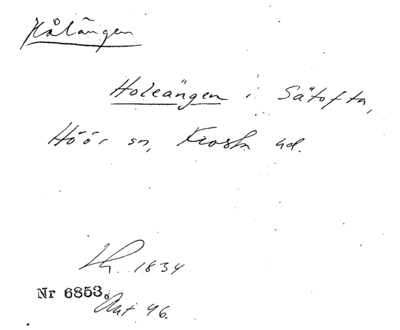 Hålängen
Holeängen i Sätofta,
Höör sn, Frosta hd.
Lh. 1834
Nr 6853.
Akt 46.